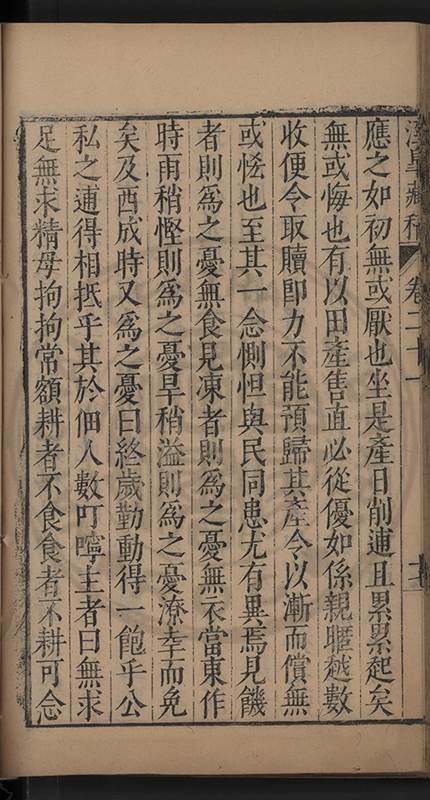 卷二十一
應之如初無或厭也坐是產日削逋且累累起矣
無或悔也有以田產售直必從優如係親暱越數
收便令取贖即力不能預歸其產令以漸而償無
或恡也至其一念惻怛與民同患尤有異焉見饑
者則為之憂無食見凍者則為之憂無衣當東作
時雨稍慳則為之憂旱稍溢則為之憂潦幸而免
矣及西成時又為之憂曰終歲勤動得一飽乎公
私之逋得相抵乎其於佃人數叮嚀主者曰無求
足無求精毋拘拘常額耕者不食食者不耕可念